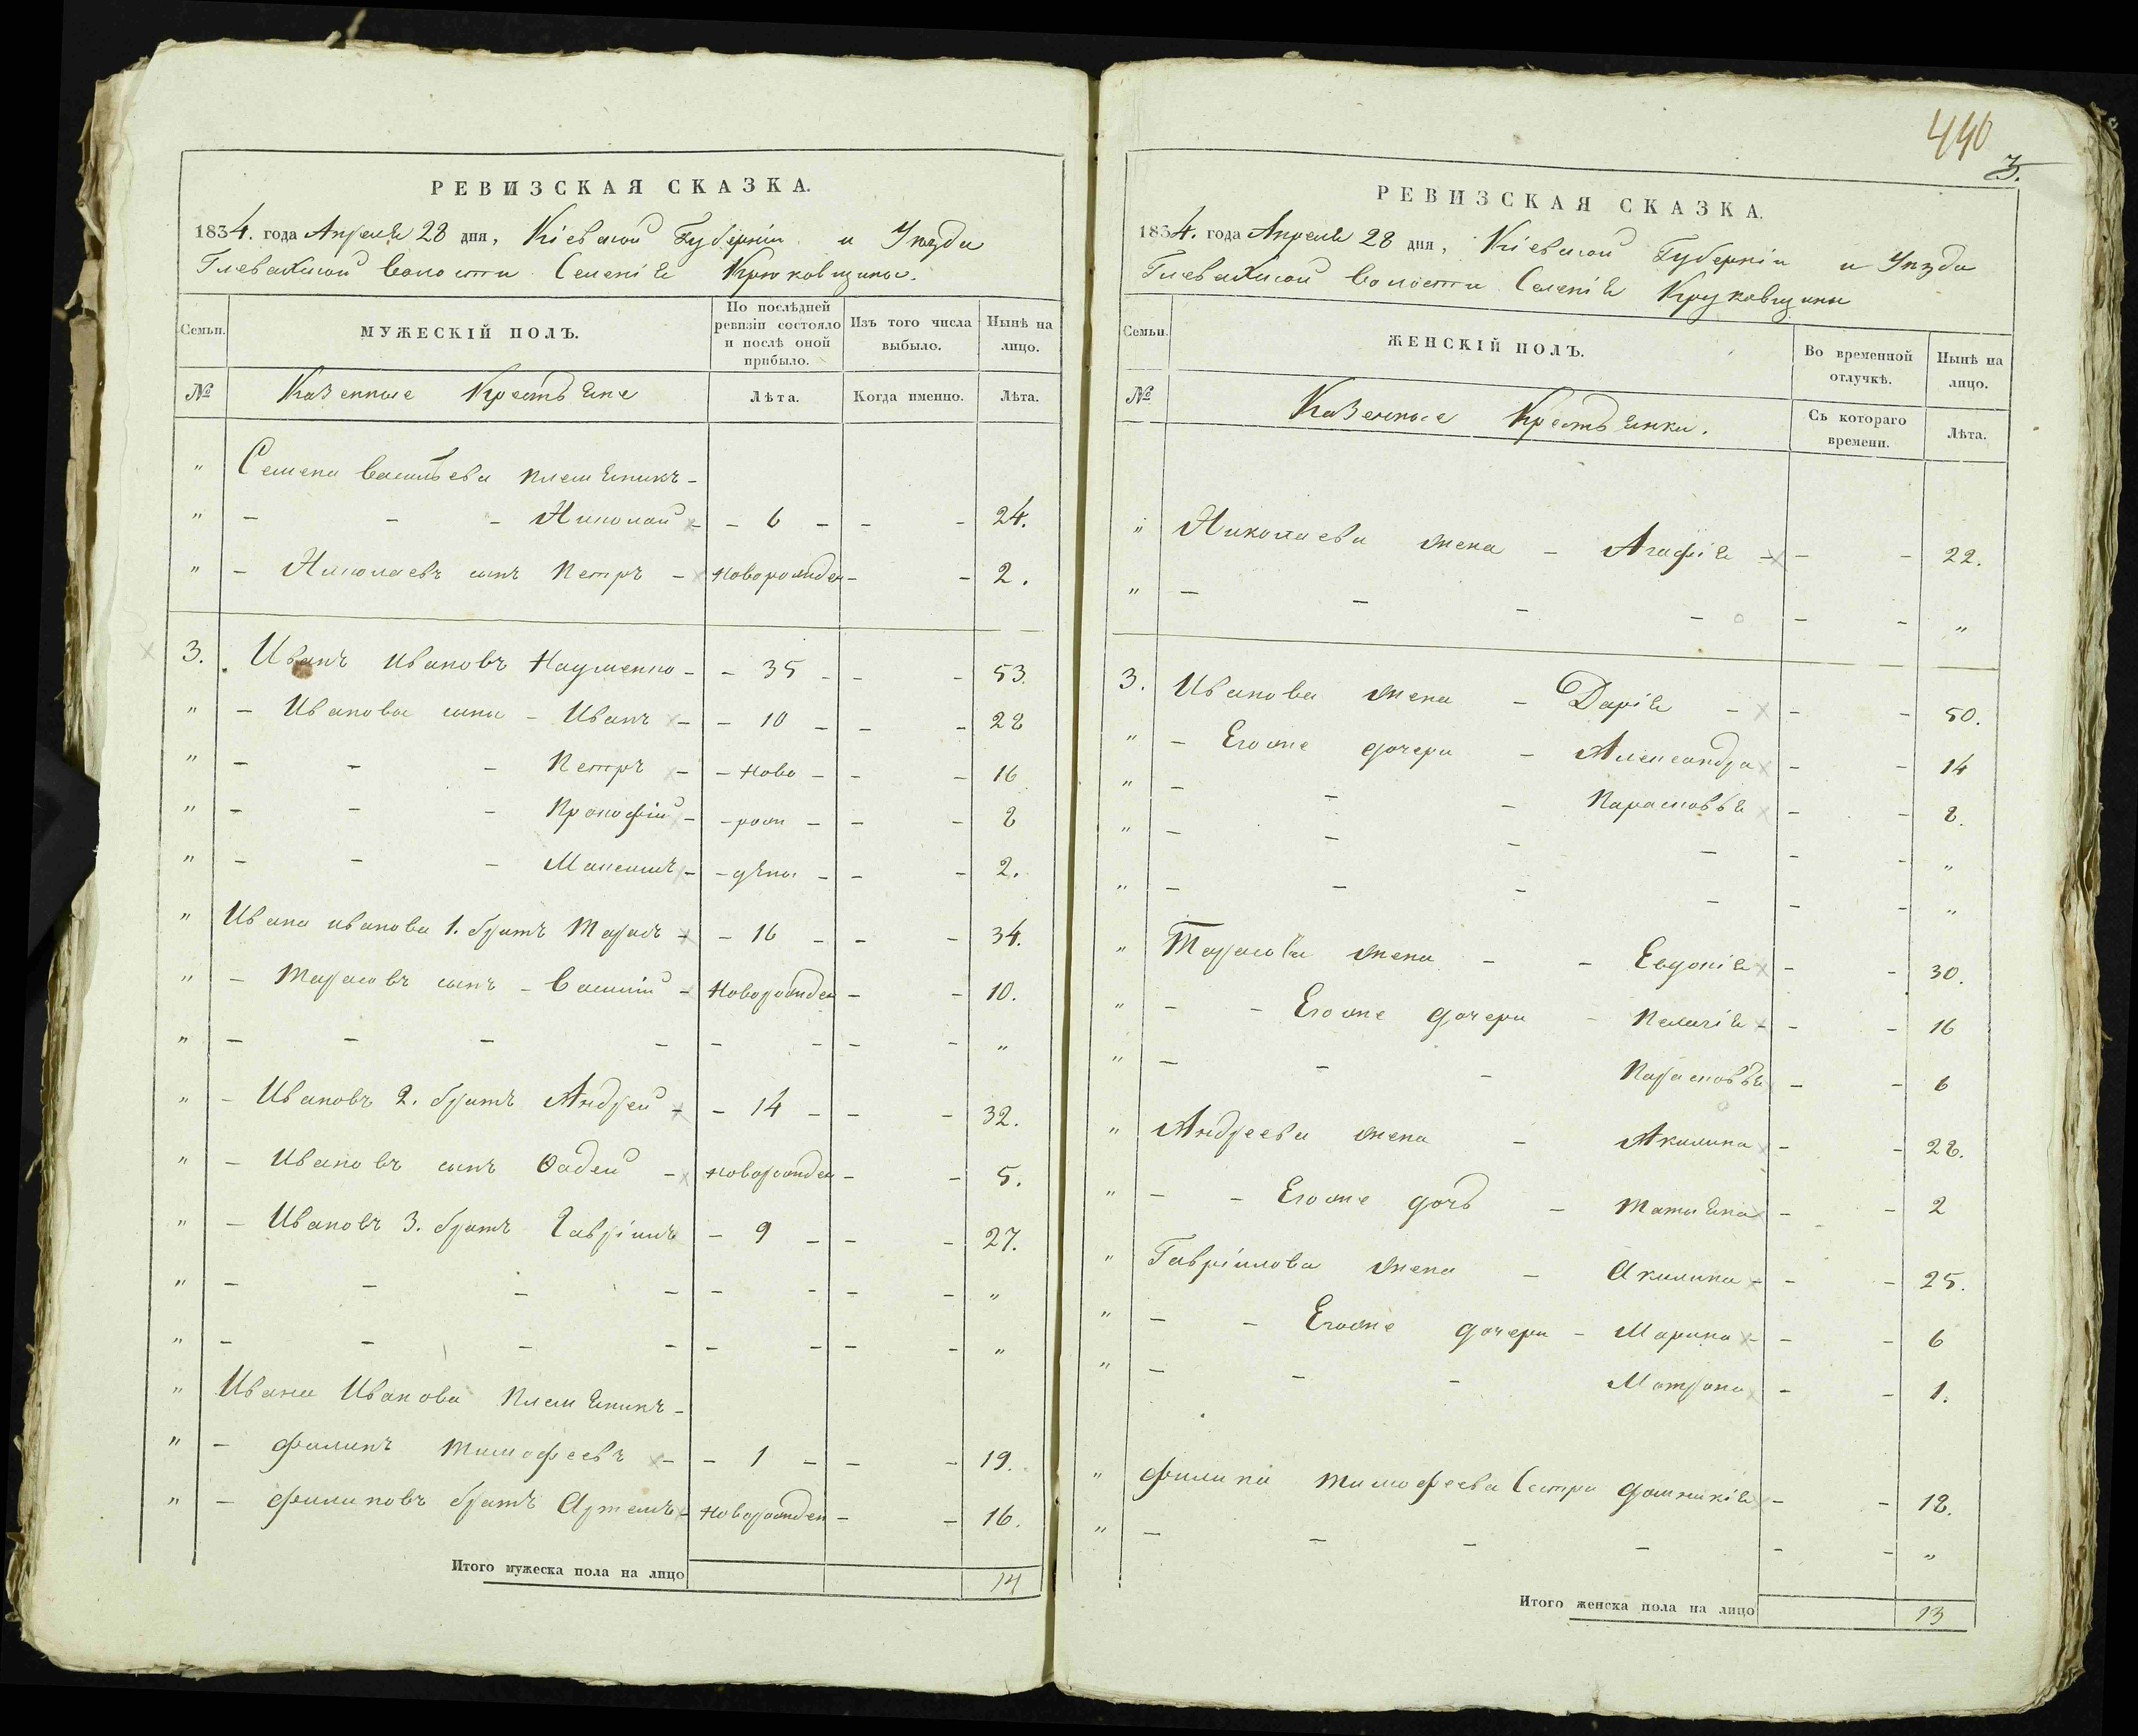 РЕВИЗСКАЯ СКАЗКА.
1834. года Апреля 28 дня, Кіевской Губерніи и Уезда
Глевахской волости Селенія Крюковщины.
Семьи. МУЖЕСКІЙ ПОЛЪ. По послѣдней ревизіи состояло и послѣ оной прибыло. Изъ того числа выбыло. Нынѣ на лицо.
№ Казенные Крестьяне Лѣта. Когда именно. Лѣта.
" Семена Васильева племяникъ -
" - - - Николай - - 6 - - - 24.
" - Николаевъ сынъ Петръ - Новорожден - - 2.
3. Иванъ Ивановъ Науменко - - 35 - - - 53.
" - Ивановы сыны - Иванъ - - 10 - - - 28
" - - - Петръ - - Ново - - - 16
" - - - Прокофій - - рож - - - 8
" - - - Максимъ - - дены - - - 2.
" Ивана иванова 1. братъ Тарасъ - - 16 - - - 34.
" - Тарасовъ сынъ - Василій - Новорожден - - 10.
" - - - - - - - - "
" - Ивановъ 2. братъ Андрей - - 14 - - - 32.
" - Ивановъ сынъ Фадей - Новорожден - - 5.
" - Ивановъ 3. братъ Гавріилъ - 9 - - - 27.
" - - - - - - - - "
" - - - - - - - - "
" Ивана Иванова Племяникъ -
" - Филипъ Тимофеевъ - - 1 - - - 19.
" - Филиповъ братъ Артемъ - Новорожден - - 16.
Итого мужеска пола на лицо 14
440
3.
РЕВИЗСКАЯ СКАЗКА.
1834. года Апреля 28 дня, Кіевской Губерніи и Уезда
Глевахской волости Селенія Круковщины
Семьи. ЖЕНСКІЙ ПОЛЪ. Во временной отлучкѣ. Нынѣ на лицо.
№ Казенные Крестьянки. Съ котораго времени. Лѣта.
" Николаева жена - Агафія - - - 22.
" - - - - - - "
3. Иванова жена - Дарія - - - 50.
" - Егоже дочери - Александра - - 14
" - - - Парасковья - - 8.
" - - - - - - "
" - - - - - - "
" Тарасова жена - - Евдокія - - 30.
" - - Егоже дочери - Пелагія - - - 16
" - - - Парасковья - - 6
" Андреева жена - Акилина - - 28.
" - - Егоже дочь - Татіяна - - 2
" Гавріилова жена - Акилина - - - 25.
" - - Егоже дочери - Марина - - - 6
" - - - Матрона - - 1.
" Филипа Тимофеева Сестра Домникія - - 18.
" - - - - - - "
Итого женска пола на лицо 13